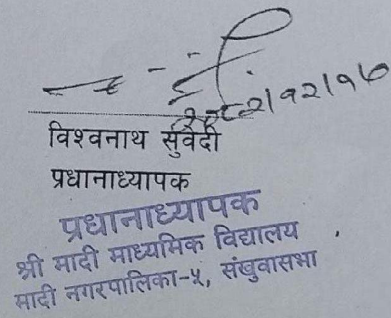 २०८२।१२।१७
विश्वनाथ सुवेदी
प्रधानाध्यापक
प्रधानाध्यापक
श्री मादी माध्यमिक विद्यालय
मादी नगरपालिका-५, संखुवासभा